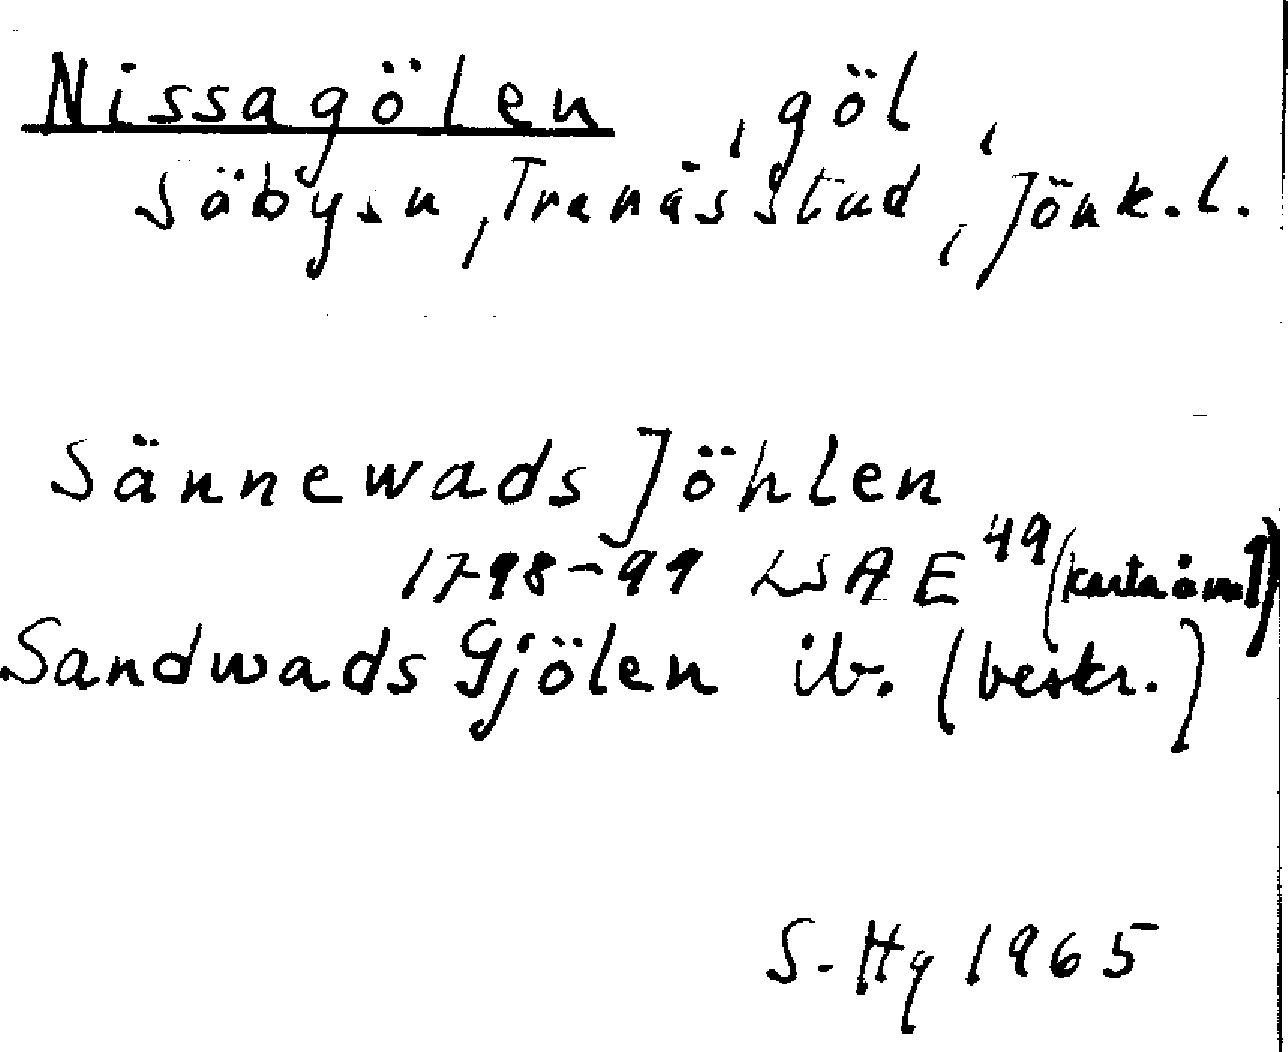 Nissagölen, göl,
Säby sn, Tranås stad, Jönk.l.
Sännewads Jöhlen
1798-99 LSA E 49 (karta
Sandwads Gjölen ib. (beskr.)
S. Hg 1965